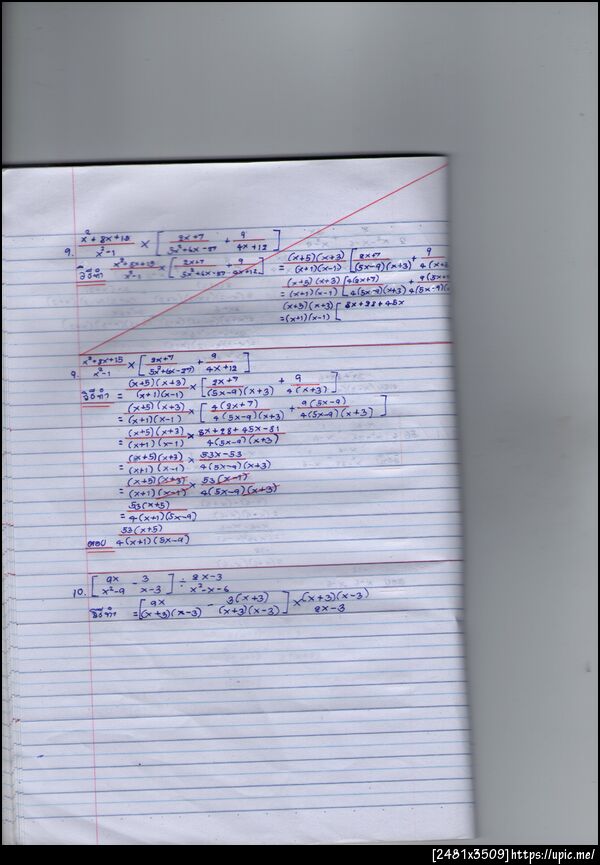 9. x²+8x+15/x²-1 × [2x+7/5x²+6x-27 + 9/4x+12]
วิธีทำ x²+8x+15/x²-1 × [2x+7/5x²+6x-27 + 9/4x+12] = (x+5)(x+3)/(x+1)(x-1) [2x+7/(5x-9)(x+3) + 9/4(x+3
= (x+5)(x+3)/(x+1)(x-1) [4(2x+7)/4(5x-9)(x+3) + 9(5x-9/4(5x-9)(x
= (x+5)(x+3)/(x+1)(x-1) [8x+28+45x
9. x²+8x+15/x²-1 × [2x+7/5x²+6x-27 + 9/4x+12]
วิธีทำ = (x+5)(x+3)/(x+1)(x-1) × [2x+7/(5x-9)(x+3) + 9/4(x+3)]
= (x+5)(x+3)/(x+1)(x-1) × [4(2x+7)/4(5x-9)(x+3) + 9(5x-9)/4(5x-9)(x+3)]
= (x+5)(x+3)/(x+1)(x-1) × 8x+28+45x-81/4(5x-9)(x+3)
= (x+5)(x+3)/(x+1)(x-1) × 53x-53/4(5x-9)(x+3)
= (x+5)(x+3)/(x+1)(x-1) × 53(x-1)/4(5x-9)(x+3)
= 53(x+5)/4(x+1)(5x-9)
ตอบ 53(x+5)/4(x+1)(5x-9)
10. [9x/x²-9 - 3/x-3] ÷ 2x-3/x²-x-6
วิธีทำ = [9x/(x+3)(x-3) - 3(x+3)/(x+3)(x-3)] × (x+3)(x-3)/2x-3
[2481x3509]https://upic.me/